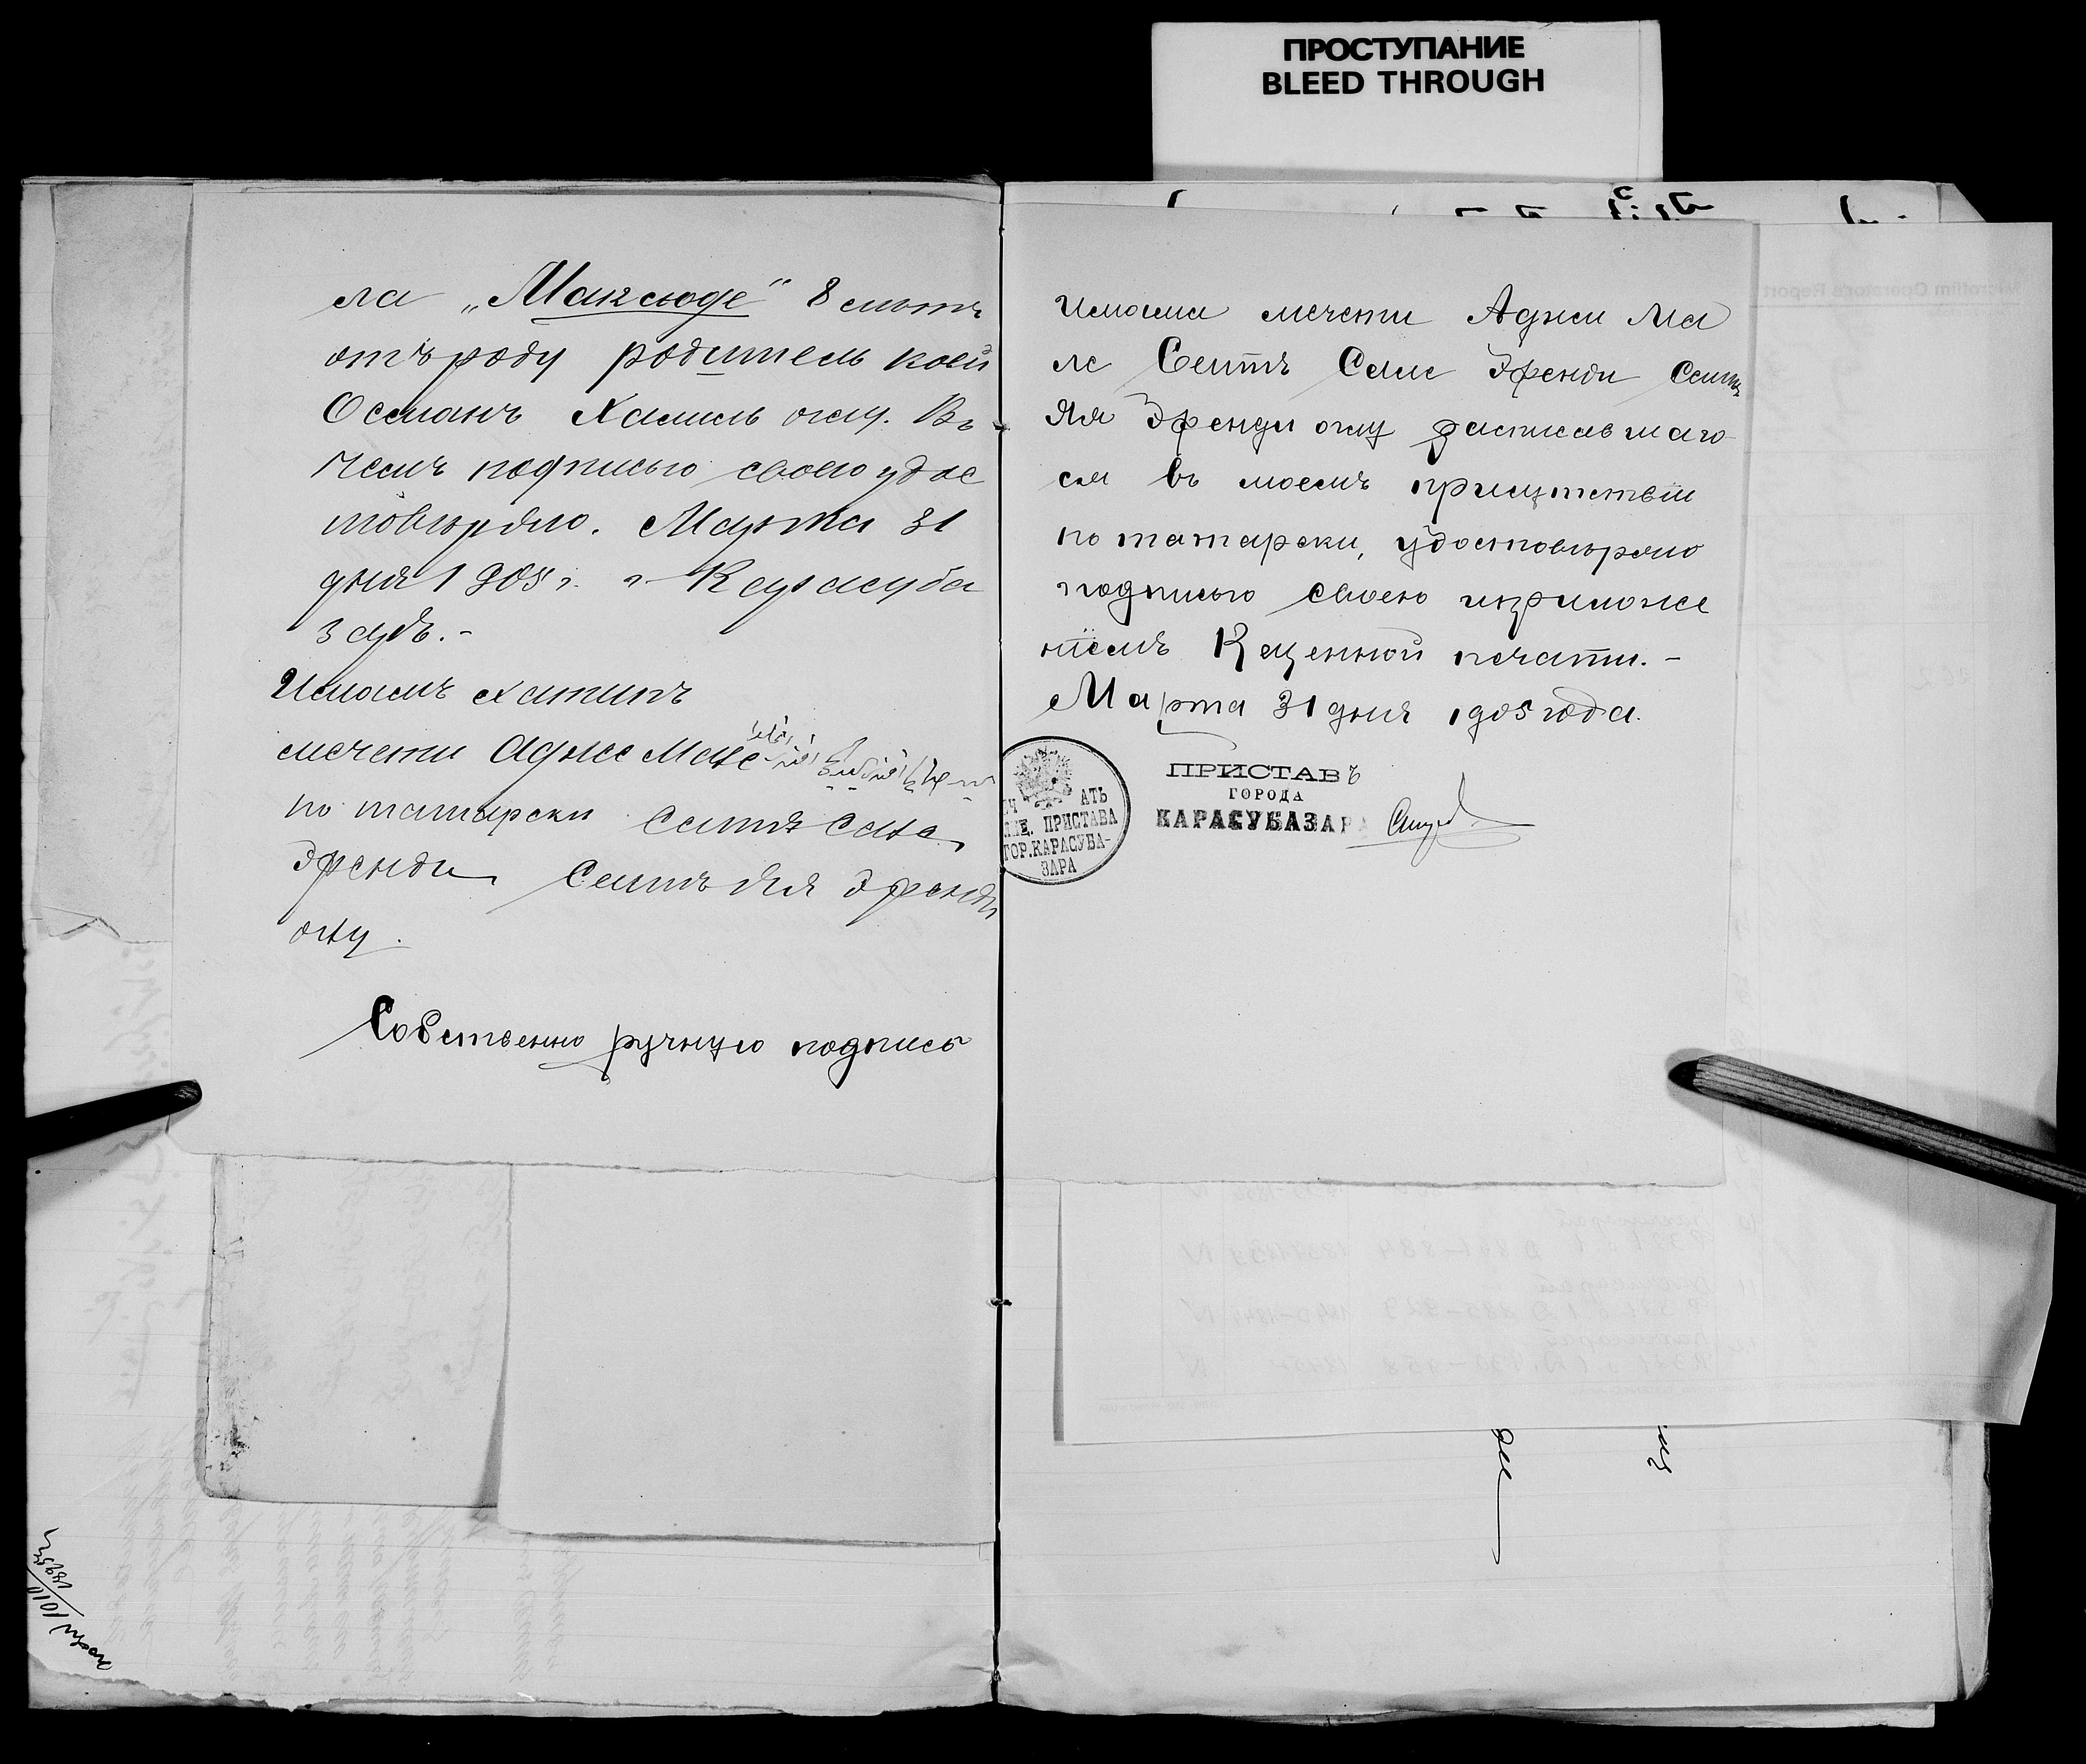 ПРОСТУПАНИЕ
BLEED THROUGH
ла „Максюде" 8 лѣтъ
отъ роду родитель коей
Османъ Халиль оглу. Въ
чемъ подписью своею удос
товѣряю. Марта 31
дня 1905 г. г. Карасуба
заръ.-
Имамъ хатипъ
мечети Аджи Мале
по татарски Сеитъ Сале
Эфенди Сеитъ Яя Эфенди
оглу.
Собственно ручную подпись
Имама мечети Аджи Ма
ле Сеитъ Сале Эфенди Сеитъ
Яя Эфенди оглу росписавшаго
ся въ моемъ присутствіи
по татарски, удостовѣряю
подписью своею и приложе
ніемъ Казенной печати.-
Марта 31 дня 1905 года.
ПРИСТАВЪ
ГОРОДА
КАРАСУБАЗАРА
АТЬ
ПРИСТАВА
ГОР.КАРАСУБА-
ЗАРА